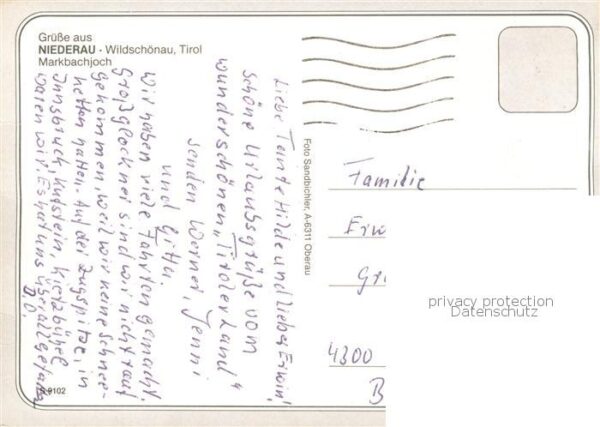 Grüße aus
NIEDERAU · Wildschönau, Tirol
Markbachjoch
Liebe Tante Hilde und lieber Erwin!
Schöne Urlaubsgrüße vom
wunderschönen „Tirolerland"
senden Werner, Jenni
und Gitti.
Wir haben viele Fahrten gemacht.
Großglockner sind wir nicht rauf
gekommen, weil wir keine Schnee-
ketten hatten. Auf der Zugspitze, in
Innsbruck, Kufstein, Kietzbühel
waren wir. Es hat uns überall gefalln
Foto Sandbichler, A-6311 Oberau
Familie
Erw
Gr
4300
B
9102
privacy protection
Datenschutz